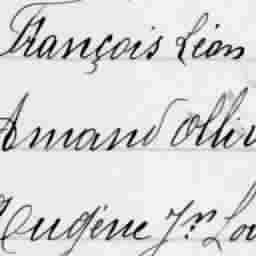 François Léon
Amand Olliv
Eugéne Jn Lou